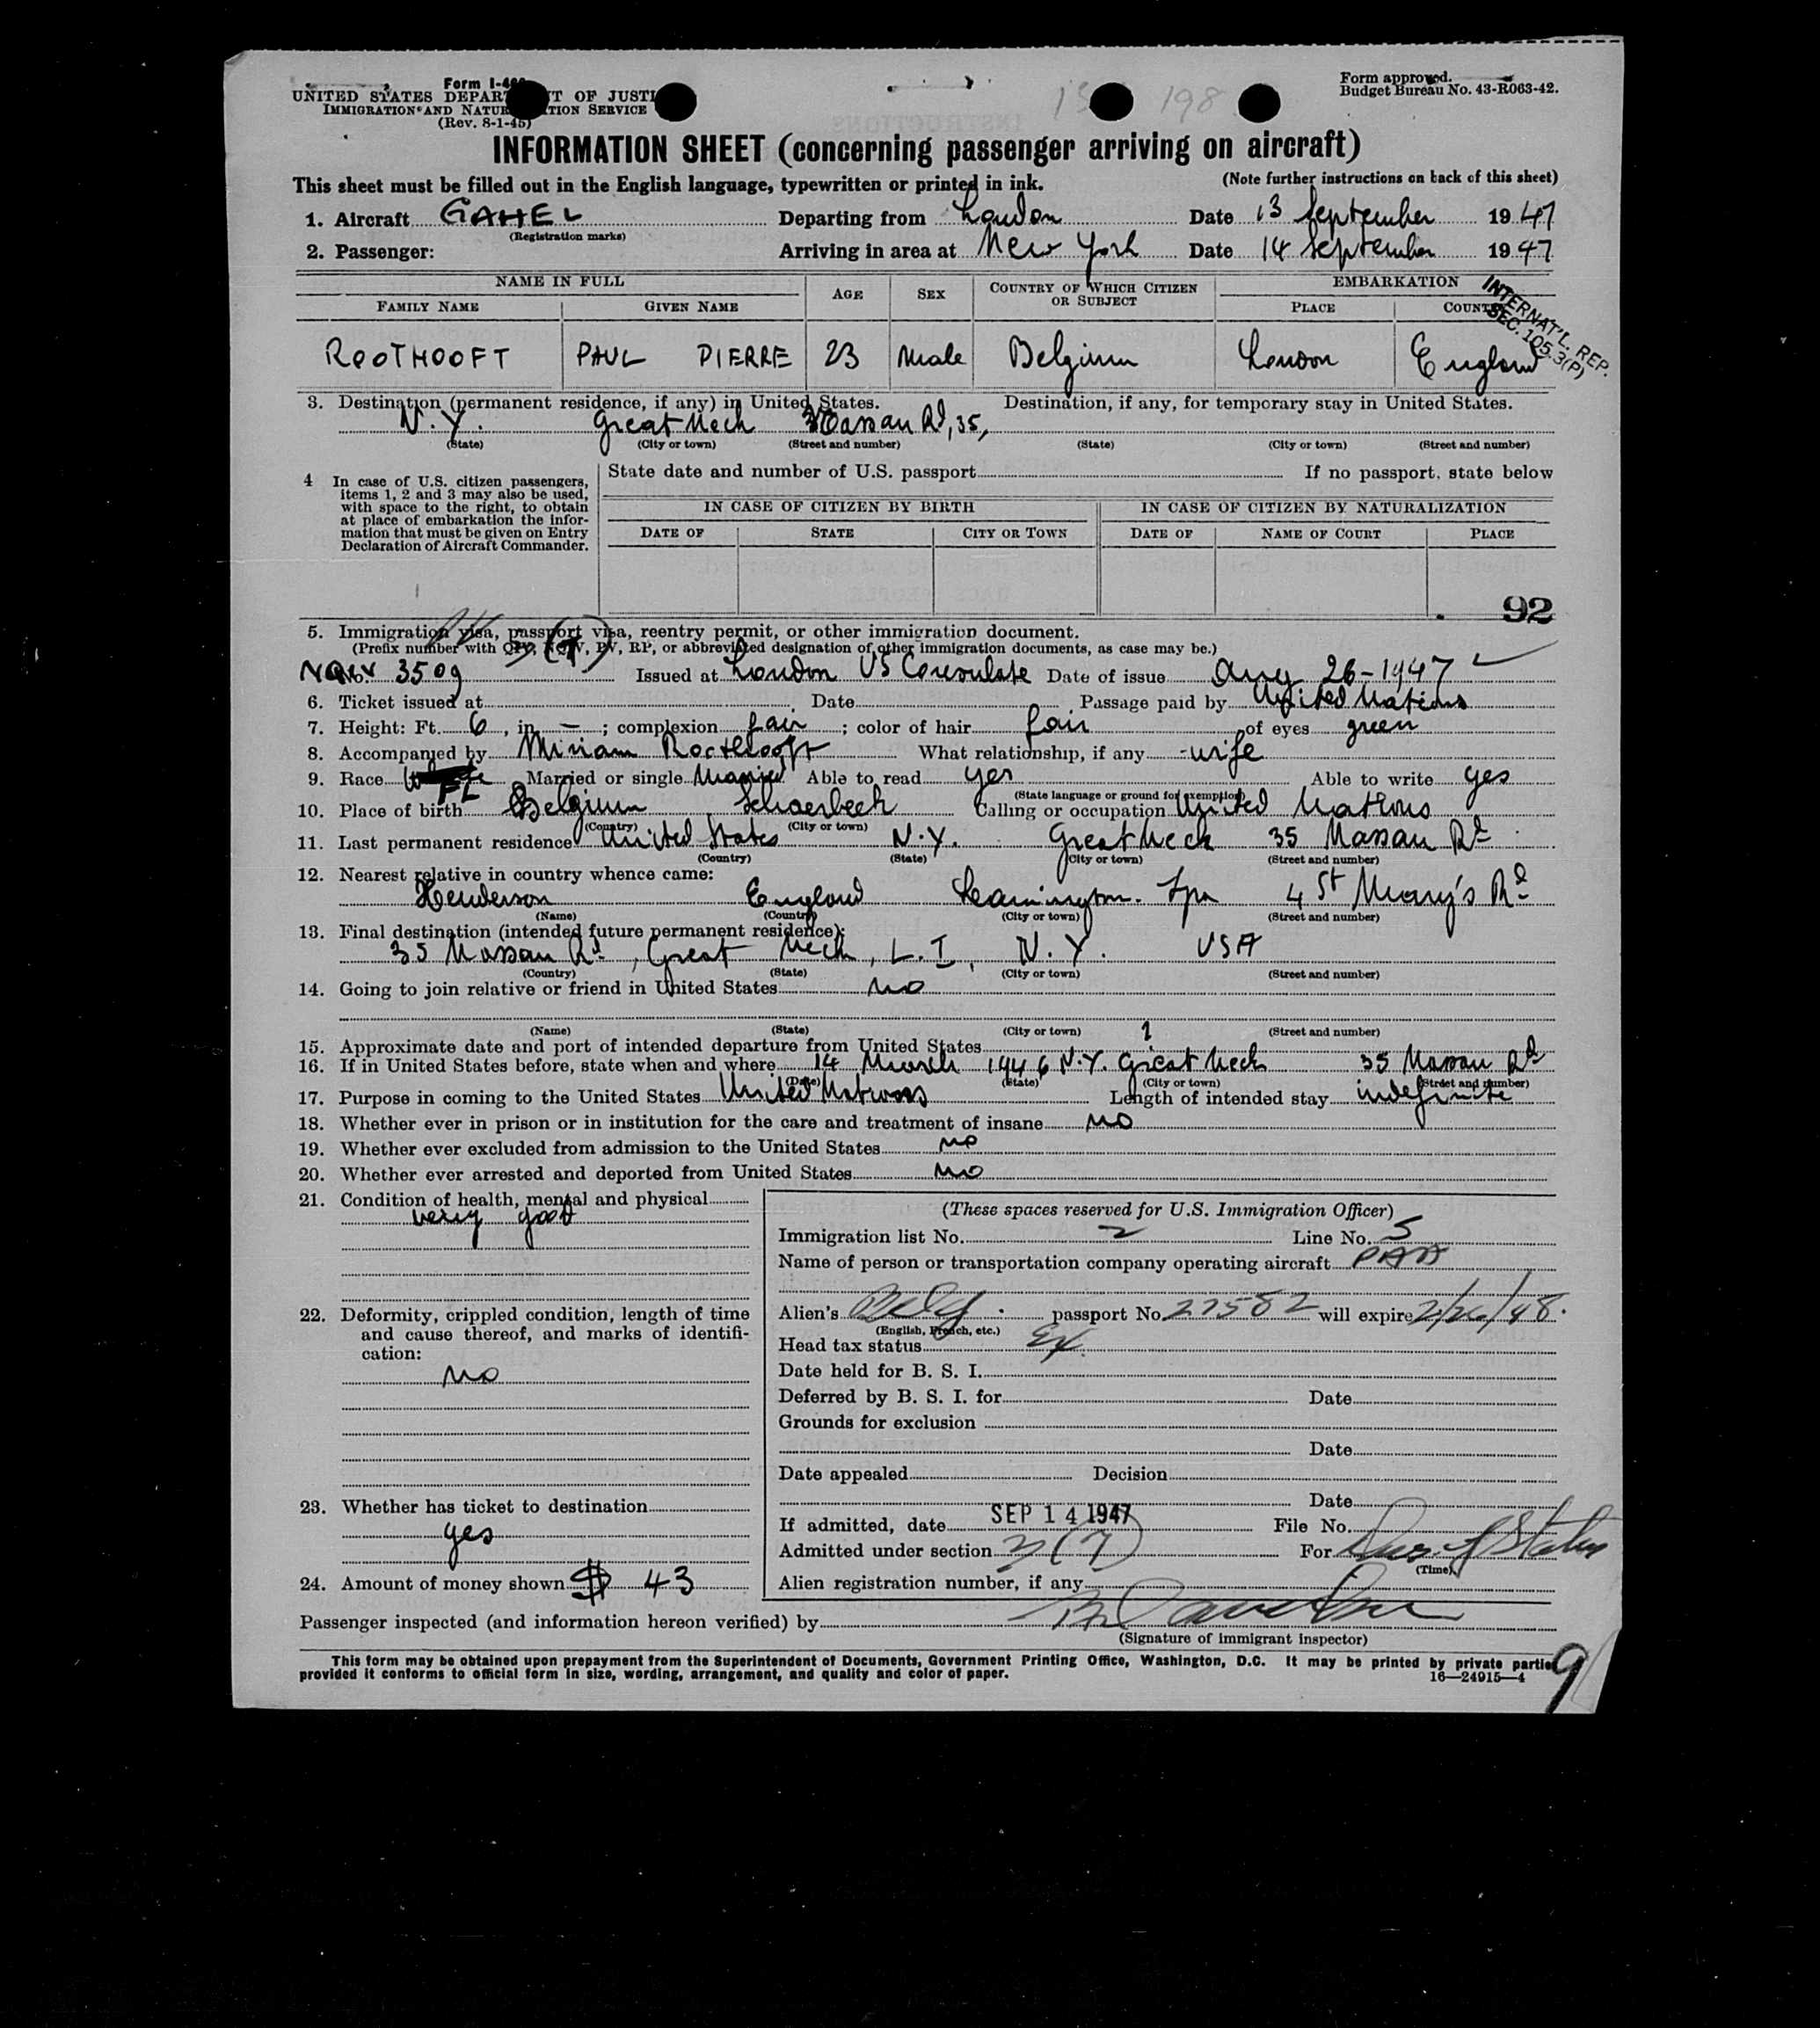 Form I-466
UNITED STATES DEPARTMENT OF JUSTICE
IMMIGRATION AND NATURALIZATION SERVICE
(Rev. 8-1-45)
198
Form approved.
Budget Bureau No. 43-R063-42.
INFORMATION SHEET (concerning passenger arriving on aircraft)
This sheet must be filled out in the English language, typewritten or printed in ink. (Note further instructions on back of this sheet)
1. Aircraft GAHEL Departing from London Date 13 September 1947
(Registration marks)
2. Passenger: Arriving in area at New York Date 14 September 1947
NAME IN FULL AGE SEX COUNTRY OF WHICH CITIZEN OR SUBJECT EMBARKATION
FAMILY NAME GIVEN NAME PLACE COUNTRY
INTERNAT'L. REP.
SEC. 105.3(P)
ROOTHOOFT PAUL PIERRE 23 Male Belgium London England
3. Destination (permanent residence, if any) in United States. Destination, if any, for temporary stay in United States.
N.Y. Great Neck Nassau Rd, 35,
(State) (City or town) (Street and number) (State) (City or town) (Street and number)
4 In case of U.S. citizen passengers, items 1, 2 and 3 may also be used, with space to the right, to obtain at place of embarkation the information that must be given on Entry Declaration of Aircraft Commander.
State date and number of U.S. passport If no passport, state below
IN CASE OF CITIZEN BY BIRTH IN CASE OF CITIZEN BY NATURALIZATION
DATE OF STATE CITY OR TOWN DATE OF NAME OF COURT PLACE
92
5. Immigration visa, passport visa, reentry permit, or other immigration document.
3(7)
(Prefix number with QIV, NQIV, PV, RP, or abbreviated designation of other immigration documents, as case may be.)
No. 3509 Issued at London US Consulate Date of issue Aug 26-1947
6. Ticket issued at Date Passage paid by United Nations
7. Height: Ft. 6, in. —; complexion fair; color of hair fair of eyes green
8. Accompanied by Miriam Roothooft What relationship, if any wife
9. Race Married or single Married Able to read yes Able to write yes
FL
(State language or ground for exemption)
10. Place of birth Belgium Schaerbeek Calling or occupation United Nations
(Country) (City or town)
11. Last permanent residence United States N.Y. Great Neck 35 Nassau Rd
(Country) (State) (City or town) (Street and number)
12. Nearest relative in country whence came:
Henderson England Leamington Spa 4 St Mary's Rd
(Name) (Country) (City or town) (Street and number)
13. Final destination (intended future permanent residence):
35 Nassau Rd, Great Neck, L.I, N.Y. USA
(Country) (State) (City or town) (Street and number)
14. Going to join relative or friend in United States no
(Name) (State) (City or town) (Street and number)
15. Approximate date and port of intended departure from United States ?
16. If in United States before, state when and where 14 March 1946 N.Y. Great Neck 35 Nassau Rd
(Date) (State) (City or town) (Street and number)
17. Purpose in coming to the United States United Nations Length of intended stay indefinite
18. Whether ever in prison or in institution for the care and treatment of insane no
19. Whether ever excluded from admission to the United States no
20. Whether ever arrested and deported from United States no
21. Condition of health, mental and physical
very good
22. Deformity, crippled condition, length of time and cause thereof, and marks of identification:
no
23. Whether has ticket to destination
yes
24. Amount of money shown $ 43
(These spaces reserved for U.S. Immigration Officer)
Immigration list No. 2 Line No. 5
Name of person or transportation company operating aircraft PAA
Alien's Belg. passport No. 27582 will expire 2/26/48.
(English, French, etc.)
Head tax status Ex.
Date held for B. S. I.
Deferred by B. S. I. for Date
Grounds for exclusion
Date
Date appealed Decision
Date
If admitted, date SEP 14 1947 File No.
Admitted under section 3(7) For Dur. of Status
(Time)
Alien registration number, if any
Passenger inspected (and information hereon verified) by
(Signature of immigrant inspector)
This form may be obtained upon prepayment from the Superintendent of Documents, Government Printing Office, Washington, D.C. It may be printed by private parties
provided it conforms to official form in size, wording, arrangement, and quality and color of paper. 16—24915—4
9